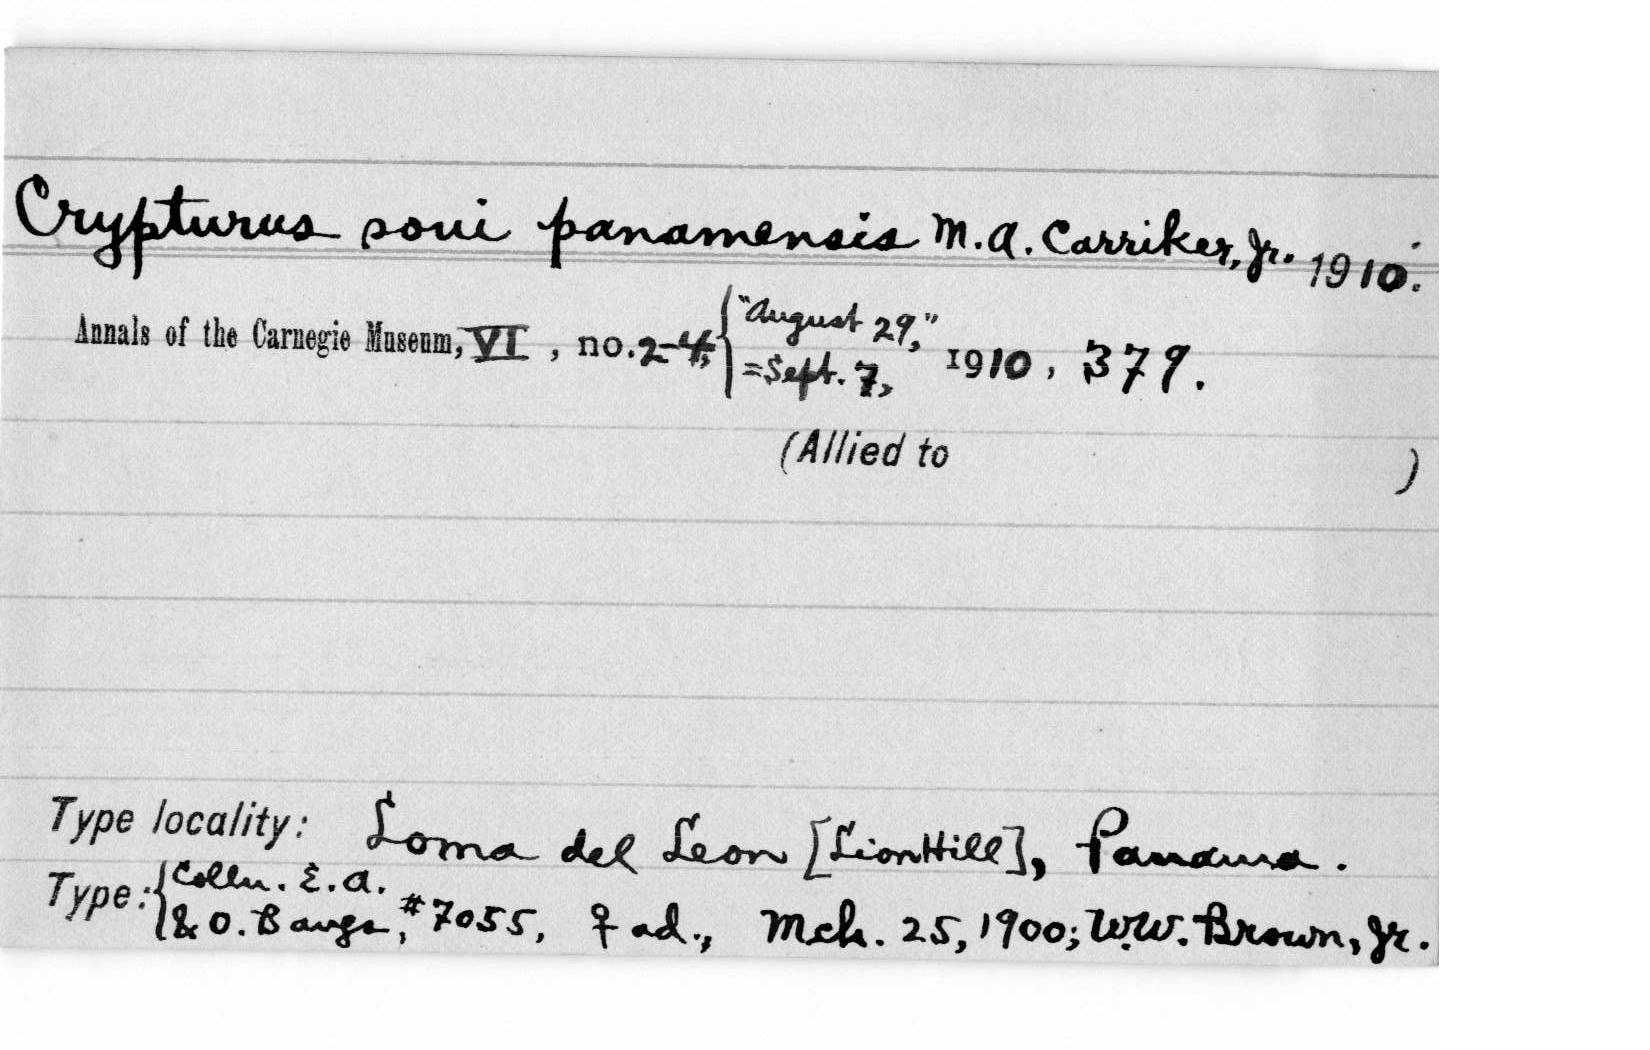 Crypturus soui panamensis M.A. Carriker, Jr. 1910.
Annals of the Carnegie Museum, VI, no. 2-4, { "August 29," = Sept. 7, 1910, 379.
(Allied to )
Type locality: Loma del Leon [Lion Hill], Panama.
Type: { Colln. E.A. & O. Bangs, #7055, ♀ ad., Mch. 25, 1900; W.W. Brown, Jr.